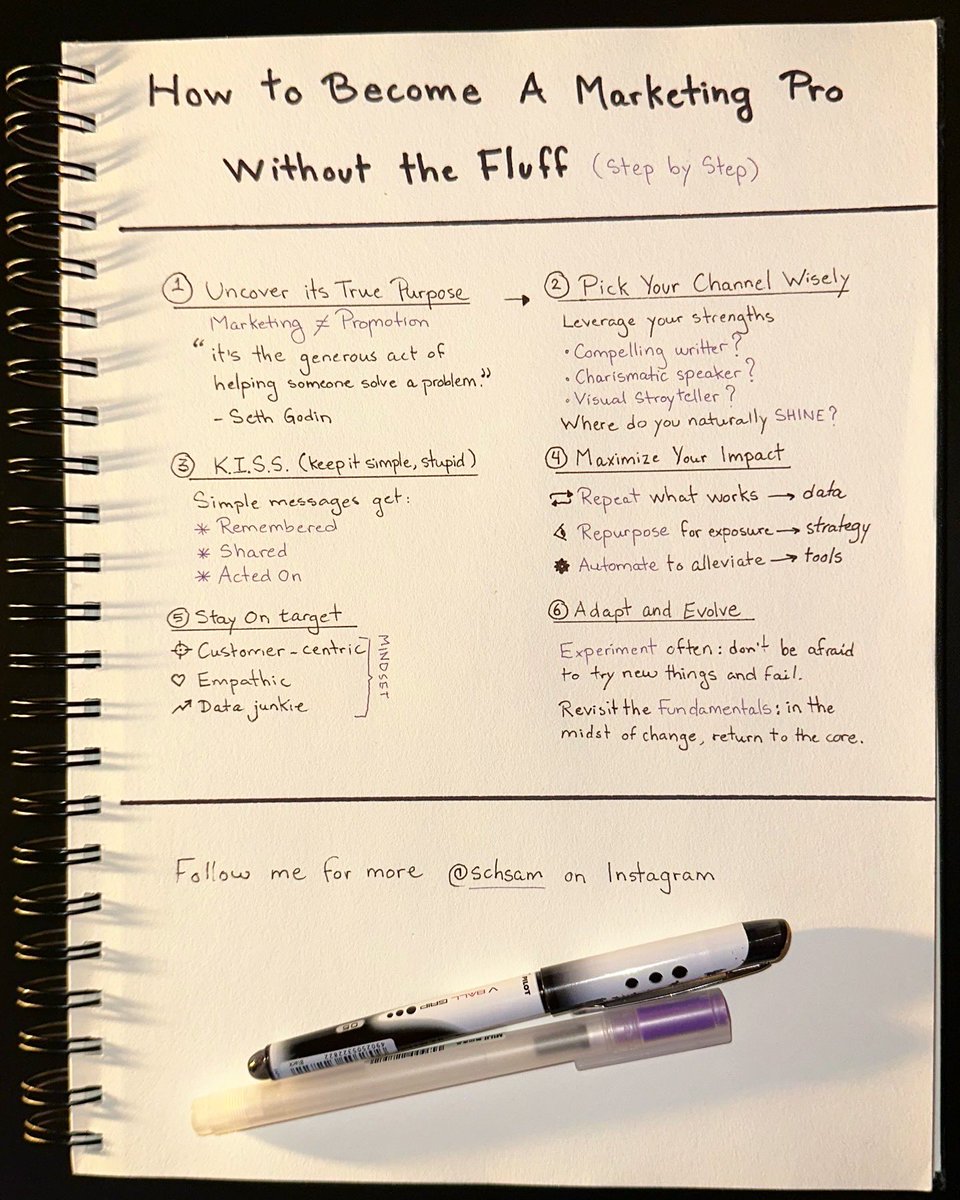 How to Become A Marketing Pro
Without the Fluff (Step by Step)
① Uncover its True Purpose
Marketing ≠ Promotion
“it's the generous act of
helping someone solve a problem.”
- Seth Godin
→ ② Pick Your Channel Wisely
Leverage your strengths
• Compelling writter?
• Charismatic speaker?
• Visual Stroyteller?
Where do you naturally SHINE?
③ K.I.S.S. (keep it simple, stupid)
Simple messages get:
* Remembered
* Shared
* Acted On
④ Maximize Your Impact
Repeat what works → data
Repurpose for exposure → strategy
Automate to alleviate → tools
⑤ Stay On target
Customer-centric
Empathic
Data junkie
MINDSET
⑥ Adapt and Evolve
Experiment often: don't be afraid
to try new things and fail.
Revisit the Fundamentals: in the
midst of change, return to the core.
Follow me for more @schsam on Instagram
PILOT
V BALL GRIP
05
4902505322822
Black